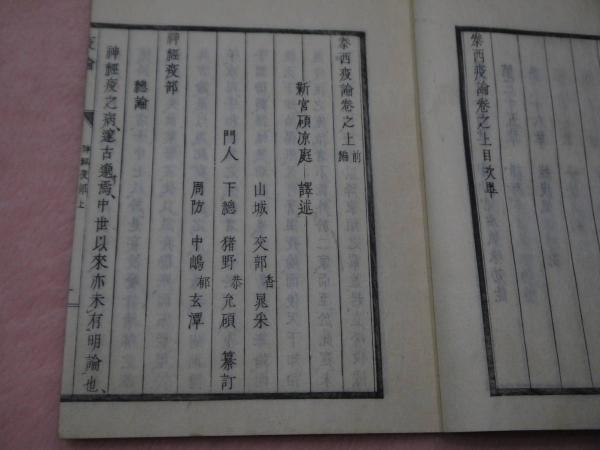 泰西疫論卷之上目次畢
泰西疫論卷之上前編
新宮碩凉庭譯述
山城 交部香晁采
門人 下總 猪野恭允碩 纂訂
周防 中嶋郁玄潭
神經疫部
總論
神經疫之病、邃古邈焉、中世以來亦未有明論也、
神經疫部 上